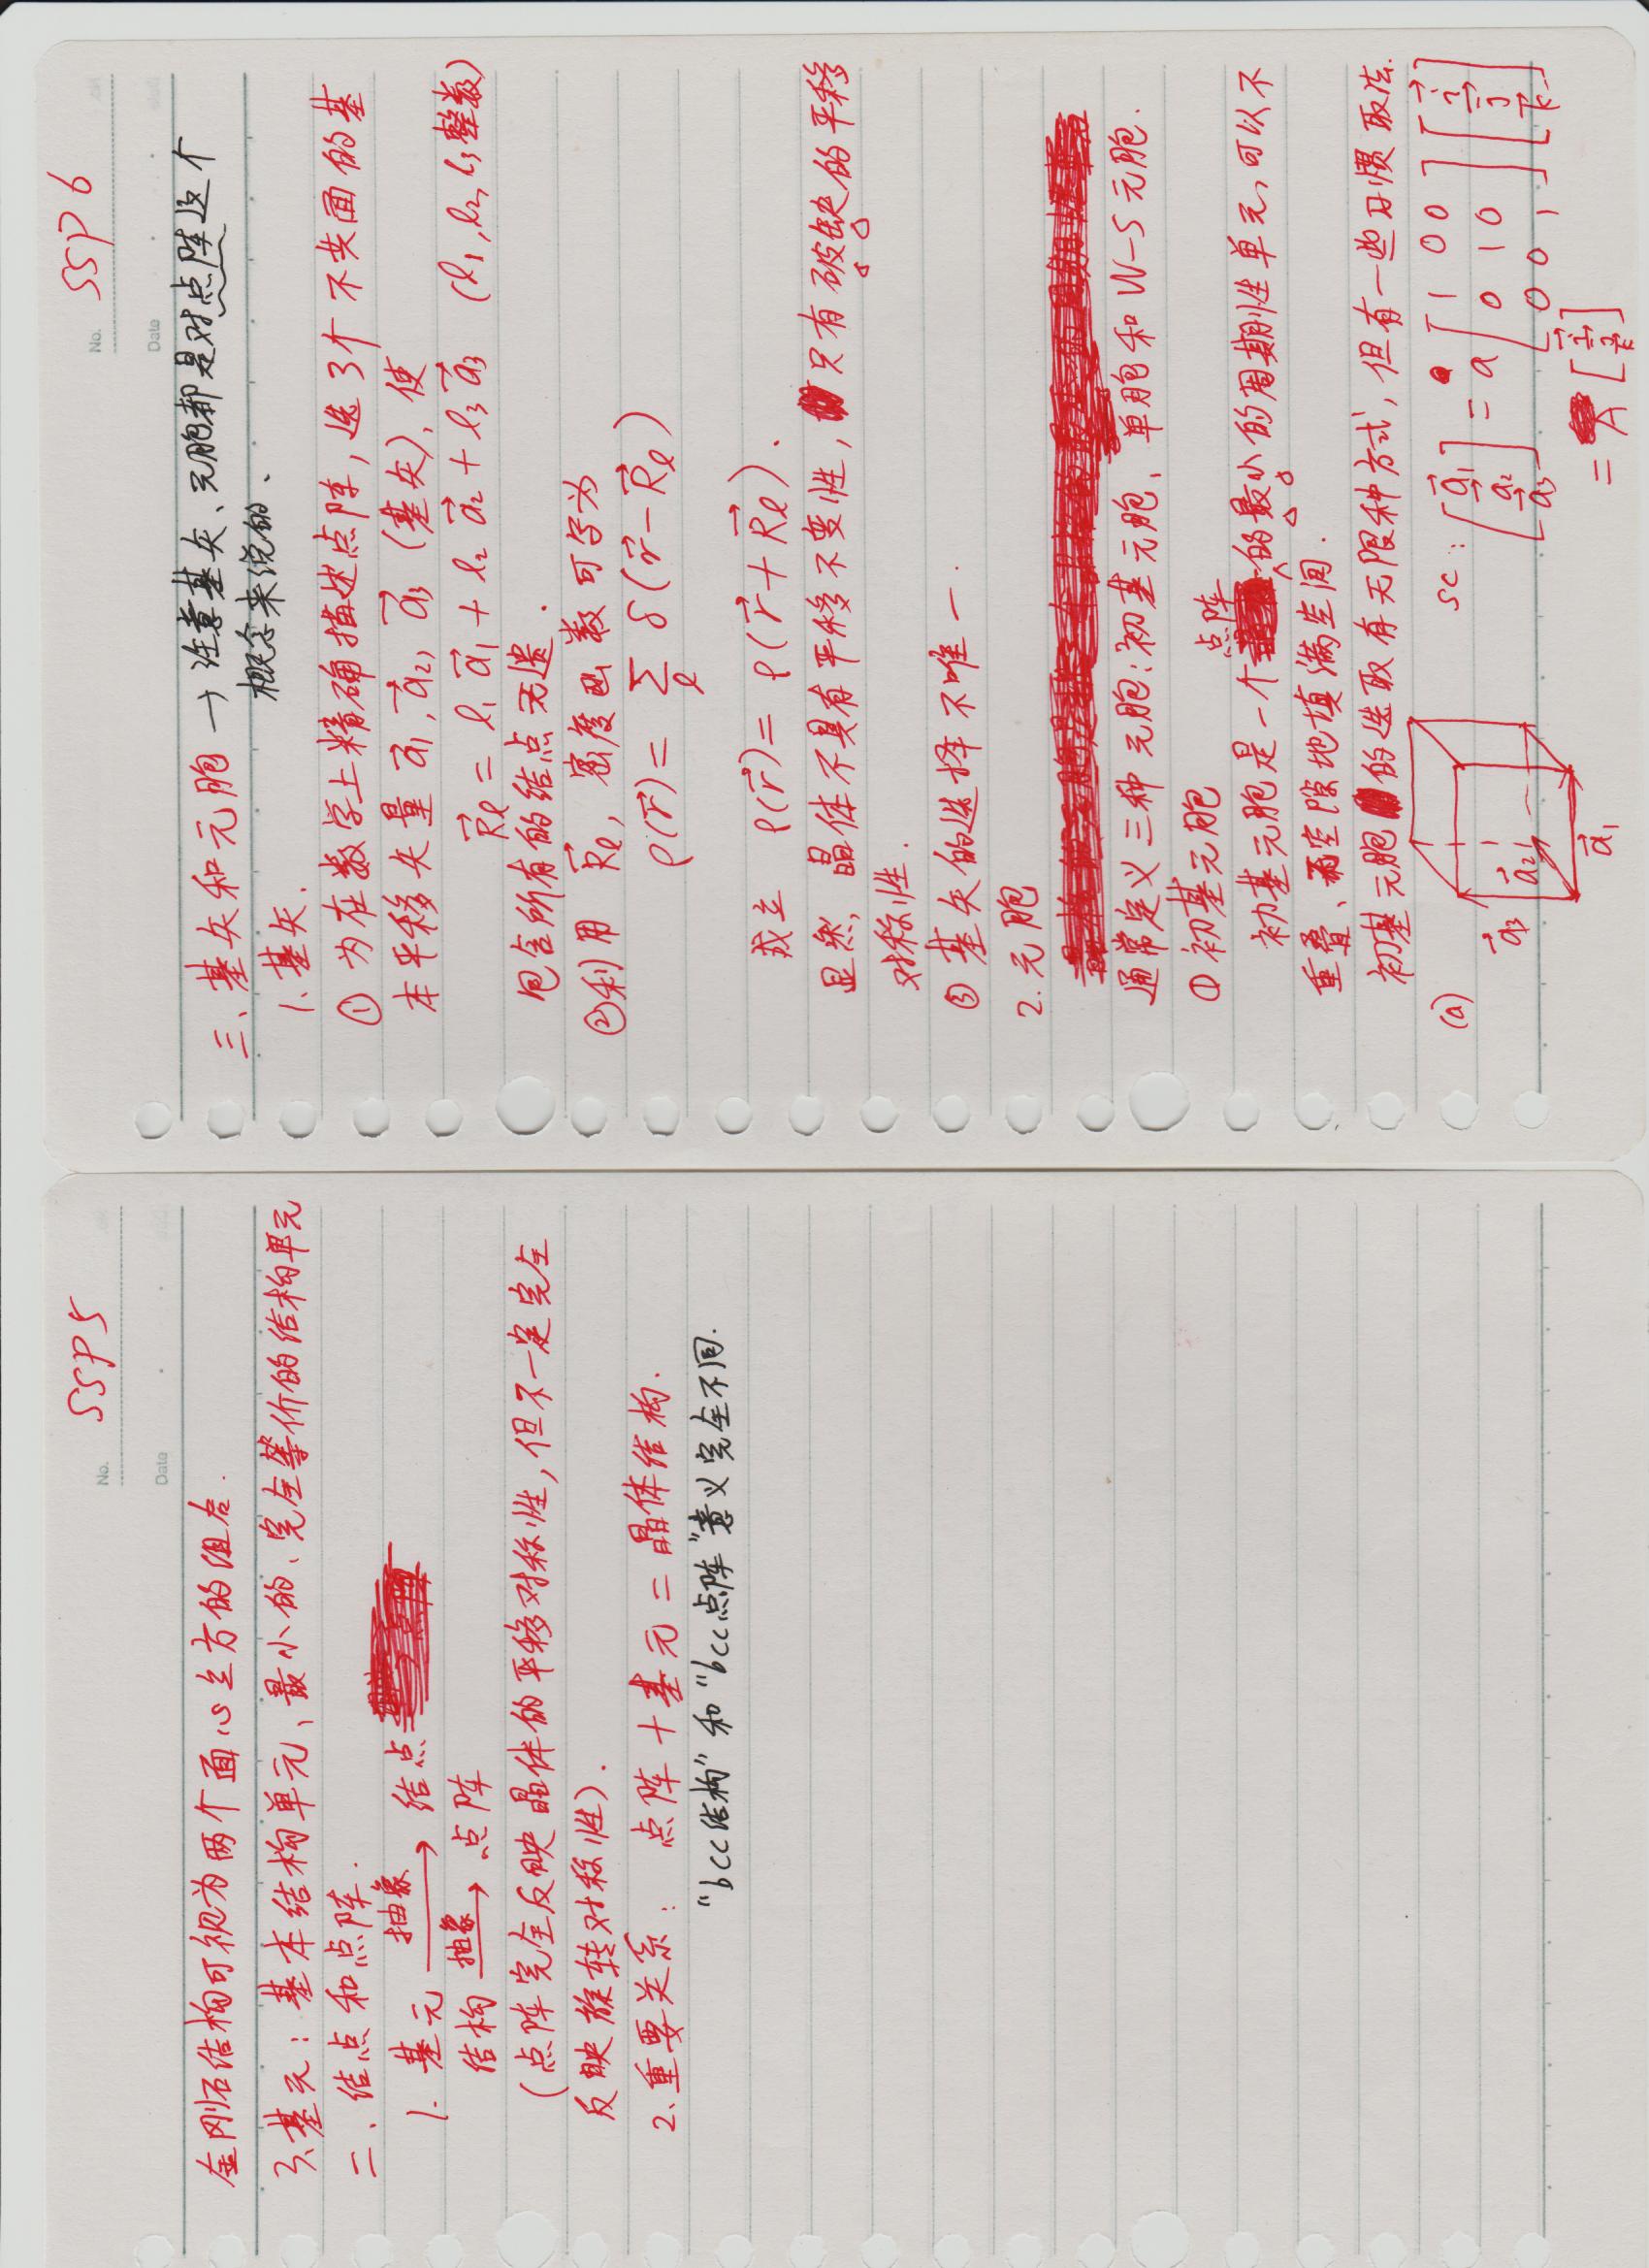 No. SSP5
Date
金刚石结构可视为两个面心立方的组合.
3.基元：基本结构单元、最小的、完全等价的结构单元
二、结点和点阵.
1. 基元 —抽象→ 结点
结构 —抽象→ 点阵
(点阵完全反映晶体的平移对称性,但不一定完全
反映旋转对称性).
2.重要关系： 点阵+基元=晶体结构.
"bcc结构"和"bcc点阵"意义完全不同.
No. SSP 6
Date
三、基矢和元胞 → 注意基矢、元胞都是对点阵这个
概念来说的.
1.基矢.
① 为在数学上精确描述点阵,选3个不共面的基
本平移矢量 a⃗1, a⃗2, a⃗3 (基矢),使
R⃗ℓ = ℓ1 a⃗1 + ℓ2 a⃗2 + ℓ3 a⃗3 (ℓ1, ℓ2, ℓ3整数)
包含所有的结点无遗.
②利用 R⃗ℓ, 密度函数可写为
ρ(r⃗) = Σℓ δ(r⃗ − R⃗ℓ)
成立 ρ(r⃗) = ρ(r⃗ + R⃗ℓ).
显然,晶体不具有平移不变性,只有破缺的平移
对称性.
③ 基矢的选择不唯一.
2.元胞
通常定义三种元胞:初基元胞、单胞和W-S元胞.
① 初基元胞
初基元胞是一个点阵的最小的周期性单元,可以不
重叠、无空隙地填满空间.
初基元胞的选取有无限种方式,但有一些习惯取法.
(a) a⃗3 a⃗2 a⃗1
sc: [a⃗1 a⃗2 a⃗3] = a [1 0 0 0 1 0 0 0 1] [i⃗ j⃗ k⃗]
= A [i⃗ j⃗ k⃗]